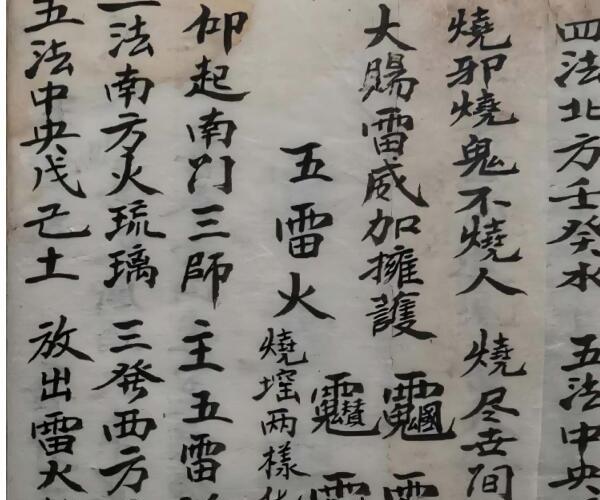 四法北方壬癸水 五法中央
燒邪燒鬼不燒人 燒尽世間
大賜雷威加擁護
五雷火
燒窑两樣
仰起南門三師 主五雷
一法南方火琉璃 三發西方
五法中央戊己土 放出雷火